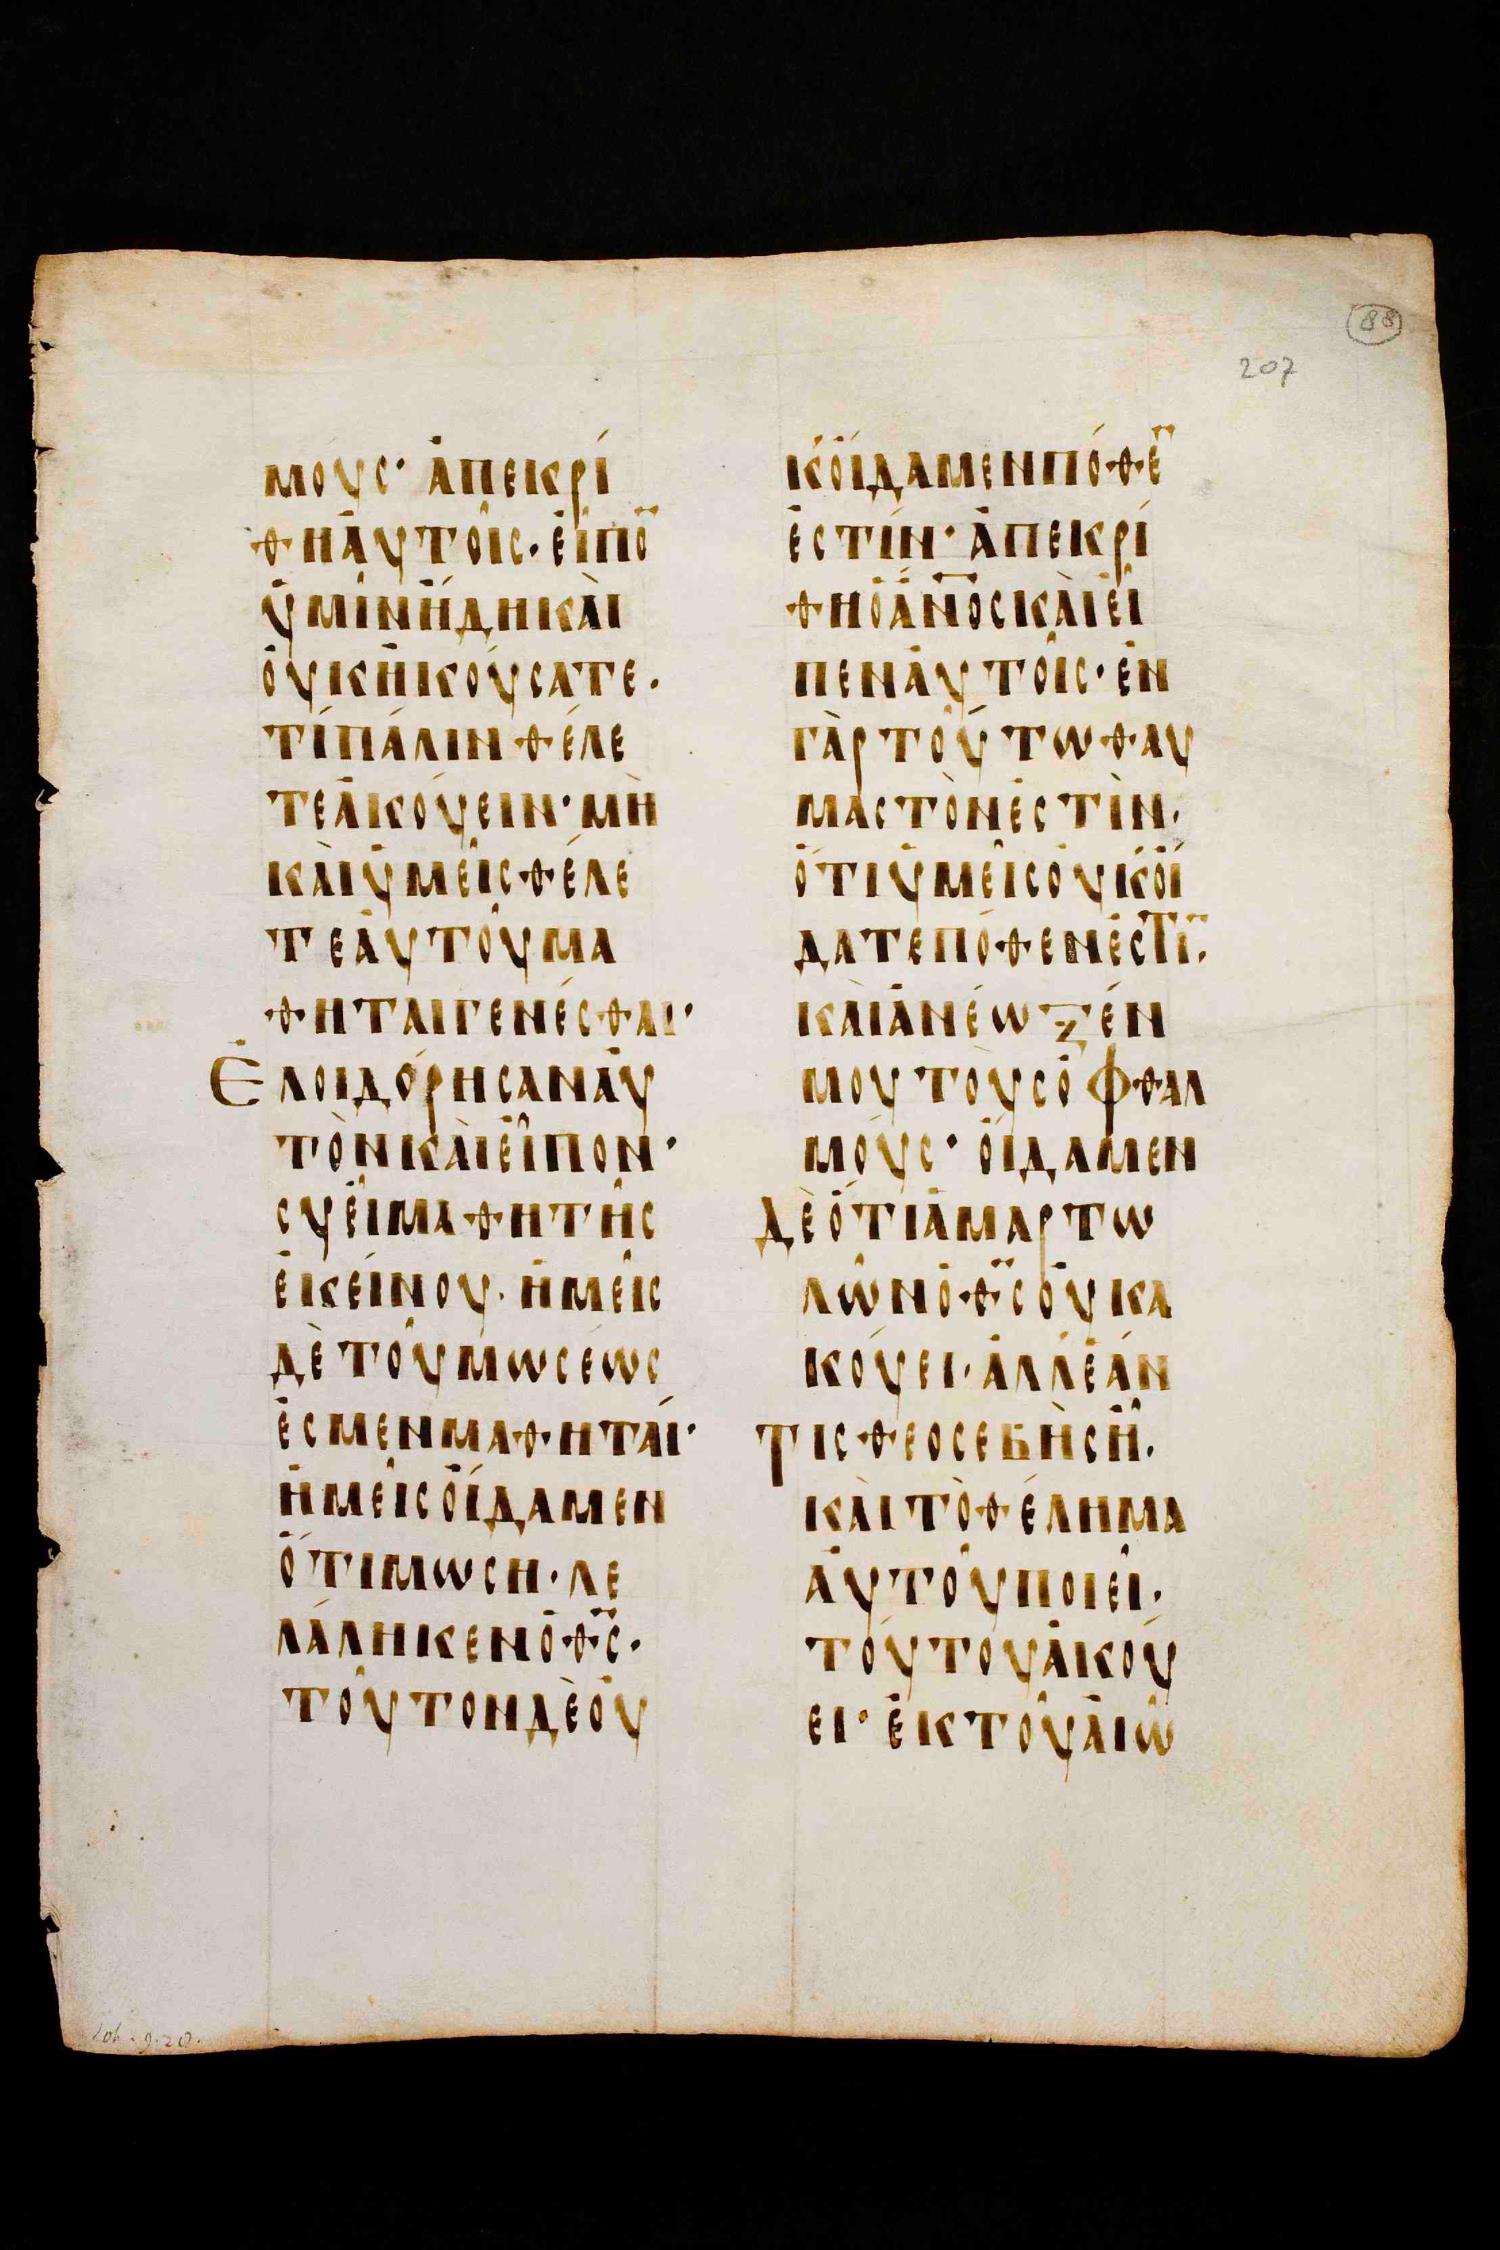 88
207
μούς· ἀπεκρί
θη ἀυτοῖς· εἶπο̄
ὑμῖν ἤδη κὰι
ὀυκ ἠκούσατε·
τί πάλιν θέλε
τε ἀκούειν· μὴ
κὰι ὑμεῖς θέλε
τε ἀυτοῦ μα
θηταὶ γενέσθαι·
Ἐλοιδόρησαν ἀυ
τὸν κὰι εἶπον·
σὺ εἶ μαθητῆς
ἐκείνου· ἡμεῖς
δὲ τοῦ μωσέως
ἐσμεν μαθηταί·
ἡμεῖς οἴδαμεν
ὅτι μωσῆ· λε
λάληκεν ὁ θ̄ς·
τοῦτον δὲ ὀυ
κ ὄιδαμεν πόθε̄
ἐστίν· ἀπεκρί
θη ὁ ἄν̄ος κὰι εἶ
πεν ἀυτοῖς· ἐν
γὰρ τούτω θαυ
μαστὸν ἐστὶν·
ὅτι ὑμεῖς ὀυκ ὄι
δατε πόθεν ἐστῑ·
κὰι ἀνέωξέν
μου τοὺς ὀφθαλ
μούς· ὄιδαμεν
δὲ ὅτι ἁμαρτω
λῶν ὁ θ̄ς ὀυκ ἀ
κούει· ἀλλ ἐάν
τις θεοσεβὴς ἦ·
κὰι τὸ θέλημα
ἀυτοῦ ποιεῖ·
τούτου ἀκού
ει· ἐκ τοῦ ἀιῶ
Ioh. 9. 28.